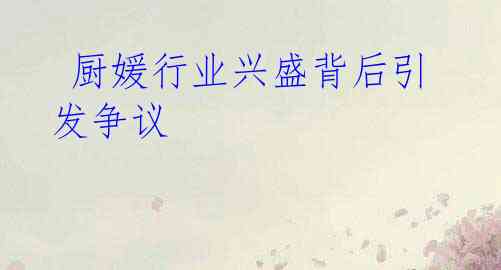 厨媛行业兴盛背后引
发争议